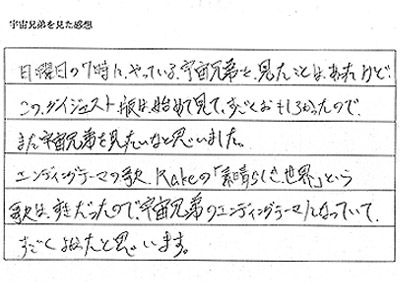 宇宙兄弟を見た感想
日曜日の7時に、やっている、宇宙兄弟を、見たことは、あったけど、
この、ダイジェスト版は、始めて見て、すごくおもしろかったので、
また宇宙兄弟を見たいなと思いました。
エンディングテーマの歌、Rakeの「素晴らしき世界」という
歌は、すきだったので、宇宙兄弟のエンディングテーマになっていて、
すごくよかったと思います。